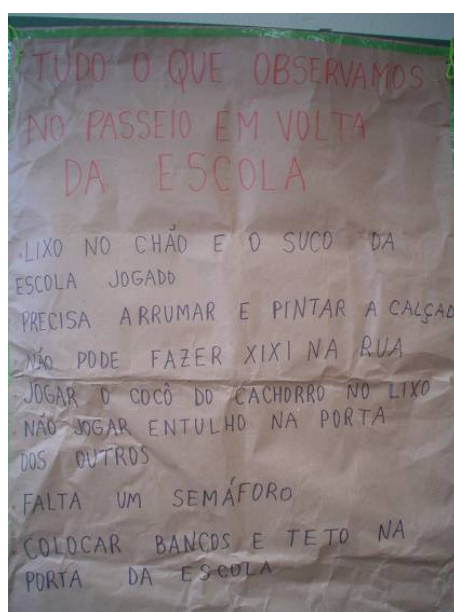 TUDO O QUE OBSERVAMOS
NO PASSEIO EM VOLTA
DA ESCOLA
. LIXO NO CHÃO E O SUCO DA
ESCOLA JOGADO
PRECISA ARRUMAR E PINTAR A CALÇAD
. NÃO PODE FAZER XIXI NA RUA
. JOGAR O COCÔ DO CACHORRO NO LIXO
. NÃO JOGAR ENTULHO NA PORTA
DOS OUTROS
. FALTA UM SEMÁFORO
. COLOCAR BANCOS E TETO NA
PORTA DA ESCOLA